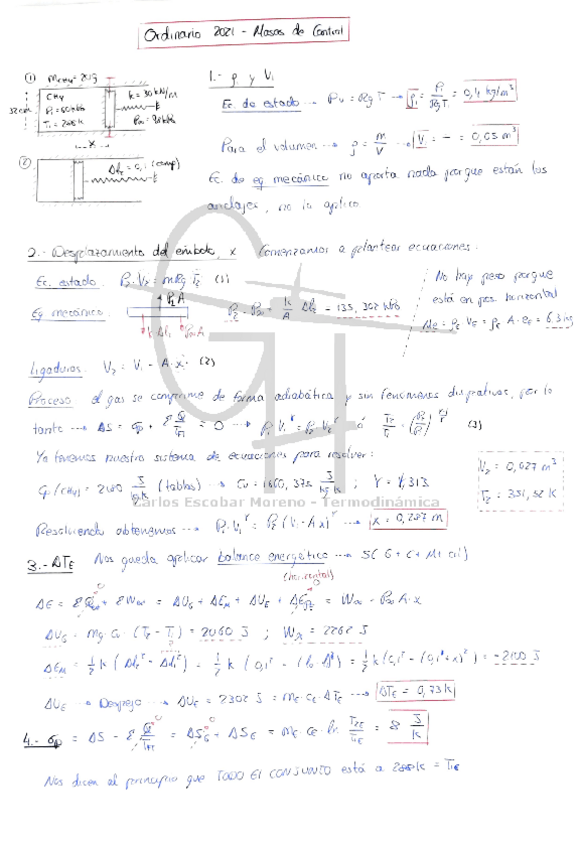 Ordinario 2021 - Masas de Control
①
CH4
P1 = 60 kPa
T1 = 288 K
k = 30 kN/m
32 cm
x
②
(comp)
1.- ρ y V1
Ec. de estado → Pv = RgT → ρ1 = P1/RgT1 = 0,4 kg/m³
Para el volumen → ρ = m/V → V = - = 0,05 m³
Ec. de eq mecánico no aporta nada porque están los
anclajes, no la aplico
2.- Desplazamiento del émbolo, x Comenzamos a plantear ecuaciones:
Ec. estado: P2·V2 = mRg T2 (1)
Eq mecánico: P2 A
P2 - P∞ = k/A Δl2 → 135,302 kPa
No hay peso porque
está en pos horizontal
Me = ρe Ve = ρe A·ee = 6,3 kg
Ligaduras: V2 = V1 - A·x (2)
Proceso: el gas se comprime de forma adiabática y sin fenómenos disipativos, por lo
tanto → ΔS = σp + Σ Q/TFi = 0 → P1·V1^γ = P2·V2^γ ó T2/T1 = (P2/P1)^ (3)
Ya tenemos nuestro sistema de ecuaciones para resolver:
V2 = 0,027 m³
T2 = 351,52 K
Cp(CH4) = J/kg·K (tablas) → Cv = 1660,375 J/kg·K ; γ = 1,313
Carlos Escobar Moreno - Termodinámica
Resolviendo obtenemos → P1·V1^γ = P2(V1-Ax)^γ → x = 0,287 m
3.- ΔTE Nos queda aplicar balance energético →
(horizontal)
ΔE = ΣQ + ΣW∞ = ΔUG + ΔEM + ΔUE + ΔE = W∞ = P∞ A·x
ΔUG = mg·cv·(T2 - T1) = 2060 J ; W∞ = 2262 J
ΔEM = 1/2 k (Δl2² - Δl1²) = 1/2 k (0,1² - = 1/2 k (0,1² - (0,1+x)²) = -2100 J
ΔUE → Despejo → ΔUE = 2302 J = mE·cE ΔTE → ΔTE = 0,73 K
4.- σp = ΔS - Σ Q/TFi = ΔSG + ΔSE = mE ce ln T2E/T1E = 8 J/K
Nos dicen al principio que TODO El CONJUNTO está a 288 K = T1E